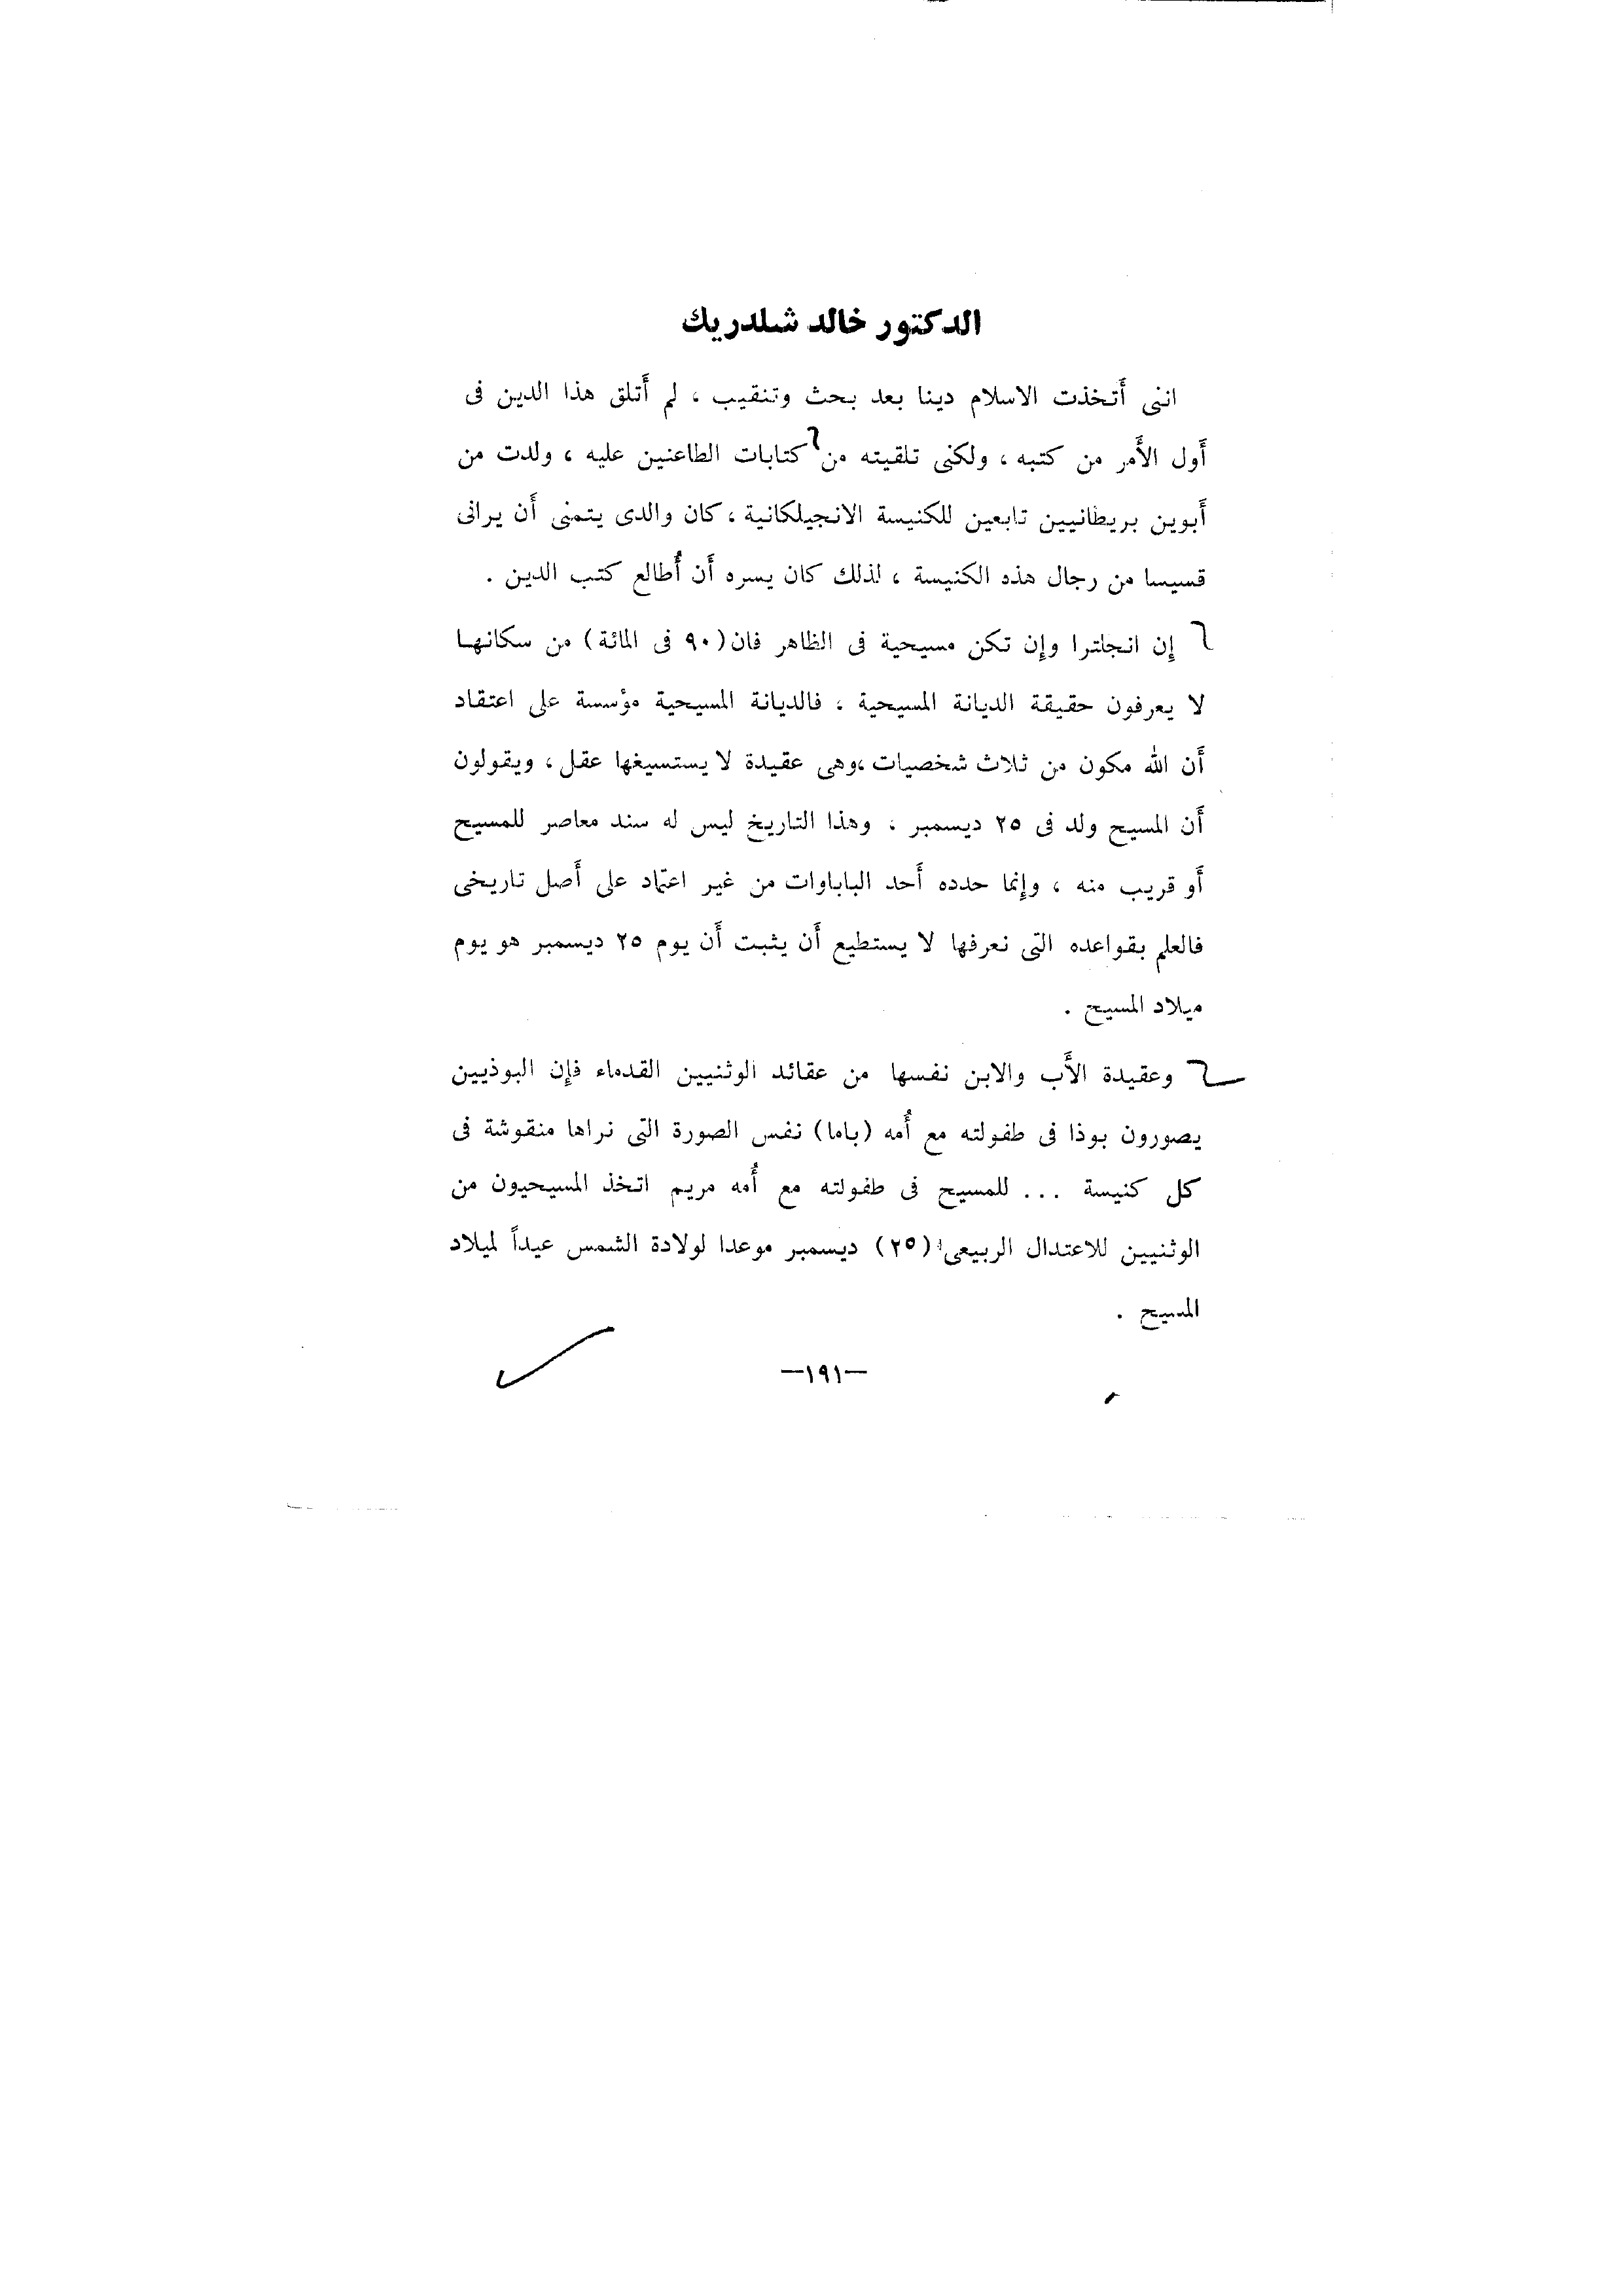 الدكتور خالد شلدريك
اننى أتخذت الاسلام دينا بعد بحث وتنقيب ، لم أتلق هذا الدين فى
أول الأمر من كتبه ، ولكنى تلقيته من كتابات الطاعنين عليه ، ولدت من
أبوين بريطانيين تابعين للكنيسة الانجيلكانية ، كان والدى يتمنى أن يرانى
قسيسا من رجال هذه الكنيسة ، لذلك كان يسره أن أُطالع كتب الدين .
إن انجلترا وإن تكن مسيحية فى الظاهر فان (٩٠ فى المائة) من سكانها
لا يعرفون حقيقة الديانة المسيحية ، فالديانة المسيحية مؤسسة على اعتقاد
أن الله مكون من ثلاث شخصيات ،وهى عقيدة لا يستسيغها عقل ، ويقولون
أن المسيح ولد فى ٢٥ ديسمبر ، وهذا التاريخ ليس له سند معاصر للمسيح
أو قريب منه ، وإنما حدده أحد الباباوات من غير اعتماد على أصل تاريخى
فالعلم بقواعده التى نعرفها لا يستطيع أن يثبت أن يوم ٢٥ ديسمبر هو يوم
ميلاد المسيح .
وعقيدة الأب والابن نفسها من عقائد الوثنيين القدماء فإن البوذيين
يصورون بوذا فى طفولته مع أُمه (باما) نفس الصورة التى نراها منقوشة فى
كل كنيسة ... للمسيح فى طفولته مع أُمه مريم اتخذ المسيحيون من
الوثنيين للاعتدال الربيعى (٢٥) ديسمبر موعدا لولادة الشمس عيداً لميلاد
المسيح .
—١٩١—